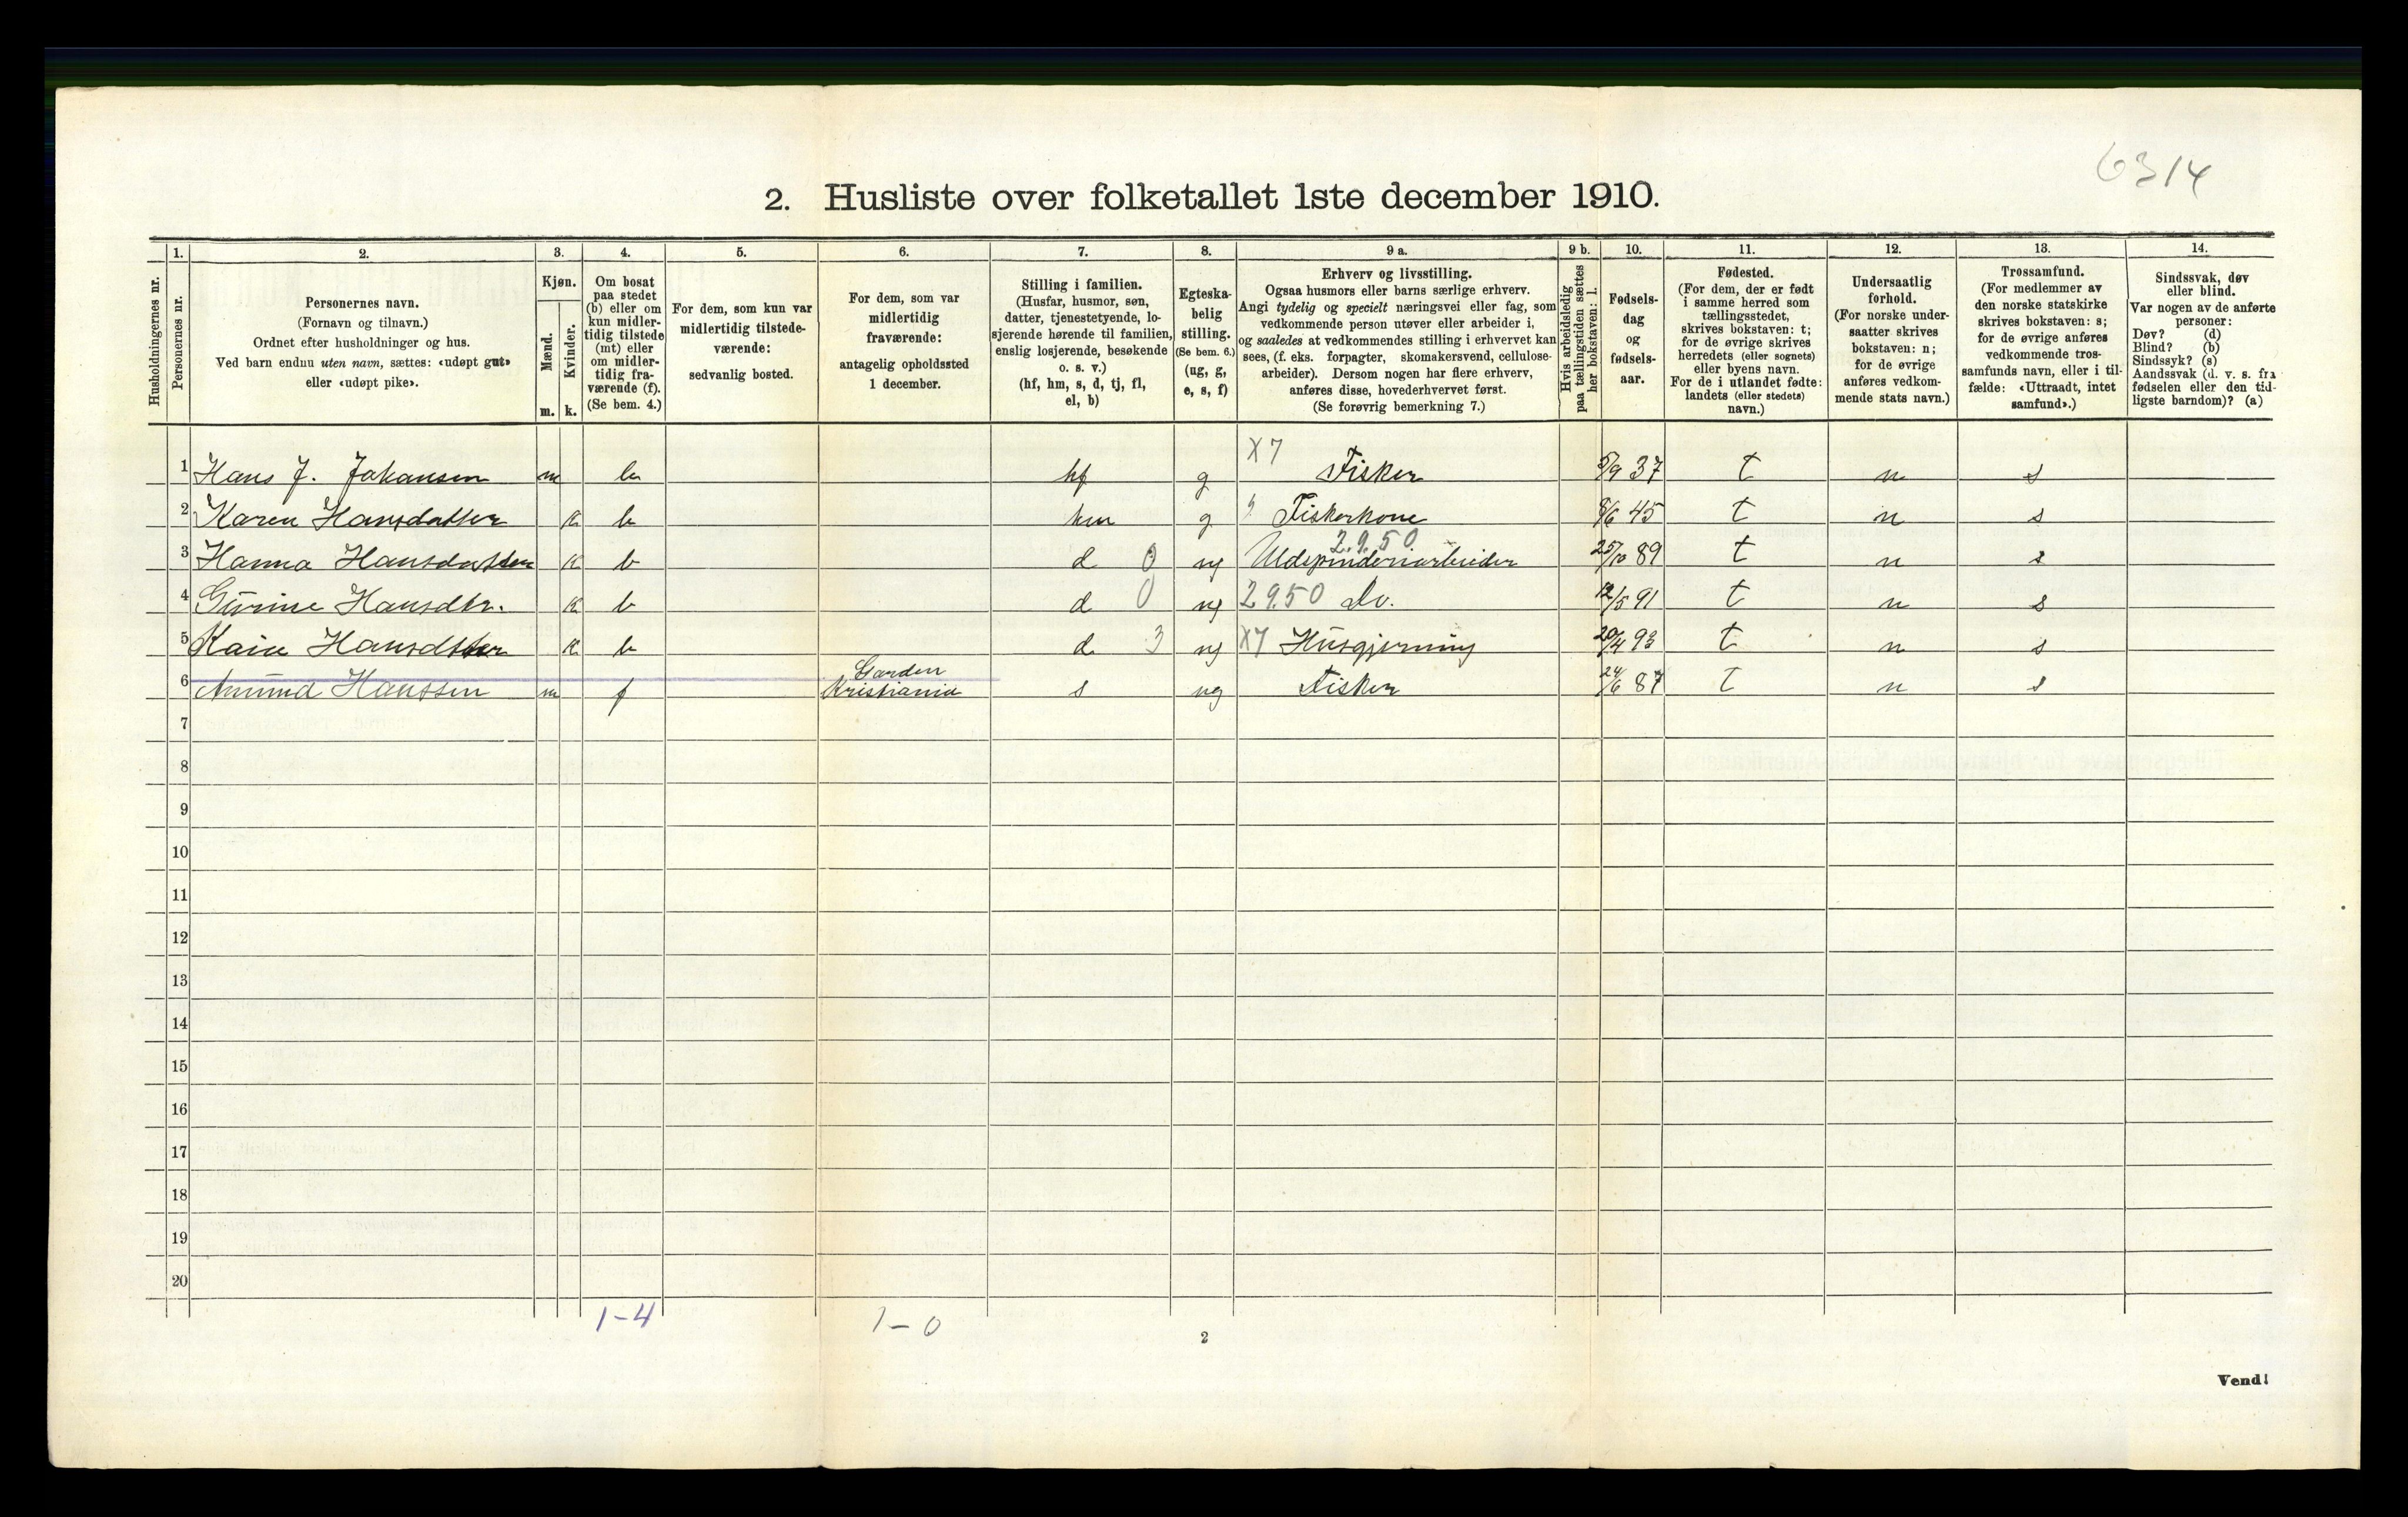 6314
2. Husliste over folketallet 1ste december 1910.
Husholdningernes nr.
1.
Personernes nr.
2.
Personernes navn.
(Fornavn og tilnavn.)
Ordnet efter husholdninger og hus.
Ved barn endnu uten navn, sættes: «udøpt gut»
eller «udøpt pike».
3.
Kjøn.
Mænd.
Kvinder.
m. k.
4.
Om bosat
paa stedet
(b) eller om
kun midler-
tidig tilstede
(mt) eller
om midler-
tidig fra-
værende (f).
(Se bem. 4.)
5.
For dem, som kun var
midlertidig tilstede-
værende:
sedvanlig bosted.
6.
For dem, som var
midlertidig
fraværende:
antagelig opholdssted
1 december.
7.
Stilling i familien.
(Husfar, husmor, søn,
datter, tjenestetyende, lo-
sjerende hørende til familien,
enslig losjerende, besøkende
o. s. v.)
(hf, hm, s, d, tj, fl,
el, b)
8.
Egteska-
belig
stilling.
(Se bem. 6.)
(ug, g,
e, s, f)
9 a.
Erhverv og livsstilling.
Ogsaa husmors eller barns særlige erhverv.
Angi tydelig og specielt næringsvei eller fag, som
vedkommende person utøver eller arbeider i,
og saaledes at vedkommendes stilling i erhvervet kan
sees, (f. eks. forpagter, skomakersvend, cellulose-
arbeider). Dersom nogen har flere erhverv,
anføres disse, hovederhvervet først.
(Se forøvrig bemerkning 7.)
9 b.
Hvis arbeidsledig
paa tællingstiden sættes
her bokstaven: l.
10.
Fødsels-
dag
og
fødsels-
aar.
11.
Fødested.
(For dem, der er født
i samme herred som
tællingsstedet,
skrives bokstaven: t;
for de øvrige skrives
herredets (eller sognets)
eller byens navn.
For de i utlandet fødte:
landets (eller stedets)
navn.)
12.
Undersaatlig
forhold.
(For norske under-
saatter skrives
bokstaven: n;
for de øvrige
anføres vedkom-
mende stats navn.)
13.
Trossamfund.
(For medlemmer av
den norske statskirke
skrives bokstaven: s;
for de øvrige anføres
vedkommende tros-
samfunds navn, eller i til-
fælde: «Uttraadt, intet
samfund».)
14.
Sindssvak, døv
eller blind.
Var nogen av de anførte
personer:
Døv? (d)
Blind? (b)
Sindssyk? (s)
Aandssvak (d. v. s. fra
fødselen eller den tid-
ligste barndom)? (a)
1 Hans J. Johansen m b hf g X7 Fisker 5/9 37 t n s
2 Karen Hansdatter k b hm g Fiskerkone 8/6 45 t n s
3 Hanna Hansdatter k b d 0 ug 2950 Uldspinderiarbeider 25/10 89 t n s
4 Gurine Hansdtr. k b d 0 ug 2950 Do. 12/5 91 t n s
5 Kaia Hansdtter k b d 3 ug X7 Husgjerning 20/4 93 t n s
6 Amund Hanssen m f Garden Kristiania s ug Fisker 24/6 87 t n s
7
8
9
10
11
12
13
14
15
16
17
18
19
20
1-4
1-0
2
Vend!